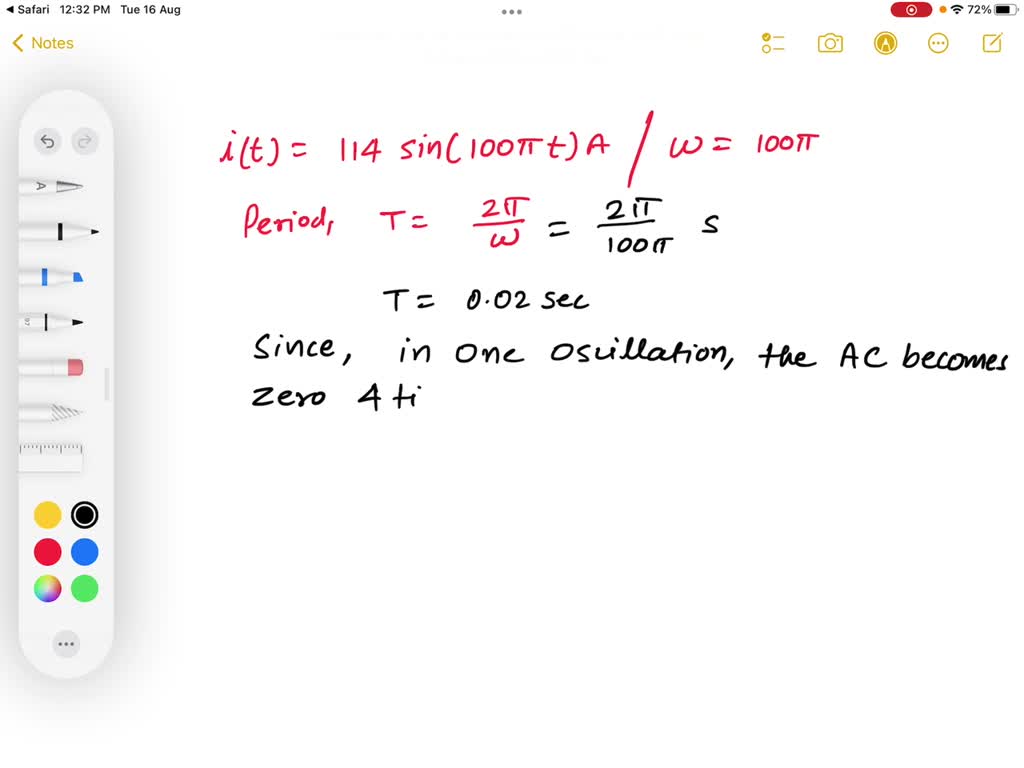 Safari 12:32 PM Tue 16 Aug
72%
Notes
i(t) = 114 sin(100πt)A / ω = 100π
Period, T = 2π/ω = 2π/100π s
T = 0.02 sec
Since, in one oscillation, the AC becomes
zero 4 ti